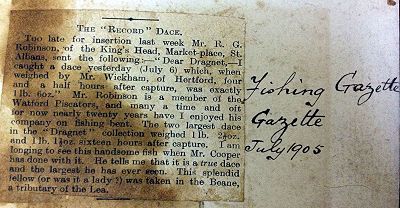 THE "RECORD" DACE.
Too late for insertion last week Mr. R. G.
Robinson, of the King's Head, Market-place, St.
Albans, sent the following:—"Dear Dragnet,—I
caught a dace yesterday (July 6) which, when
weighed by Mr. Wickham, of Hertford, four
and a half hours after capture, was exactly
1 lb. 6oz." Mr. Robinson is a member of the
Watford Piscators, and many a time and oft
for now nearly twenty years have I enjoyed his
company on fishing bent. The two largest dace
in the "Dragnet" collection weighed 1 lb. 2½oz.
and 1 lb. 1½oz. sixteen hours after capture. I am
longing to see this handsome fish when Mr. Cooper
has done with it. He tells me that it is a true dace
and the largest he has ever seen. This splendid
fellow (or was it a lady?) was taken in the Beane,
a tributary of the Lea.
Fishing Gazette
Gazette
July 1905